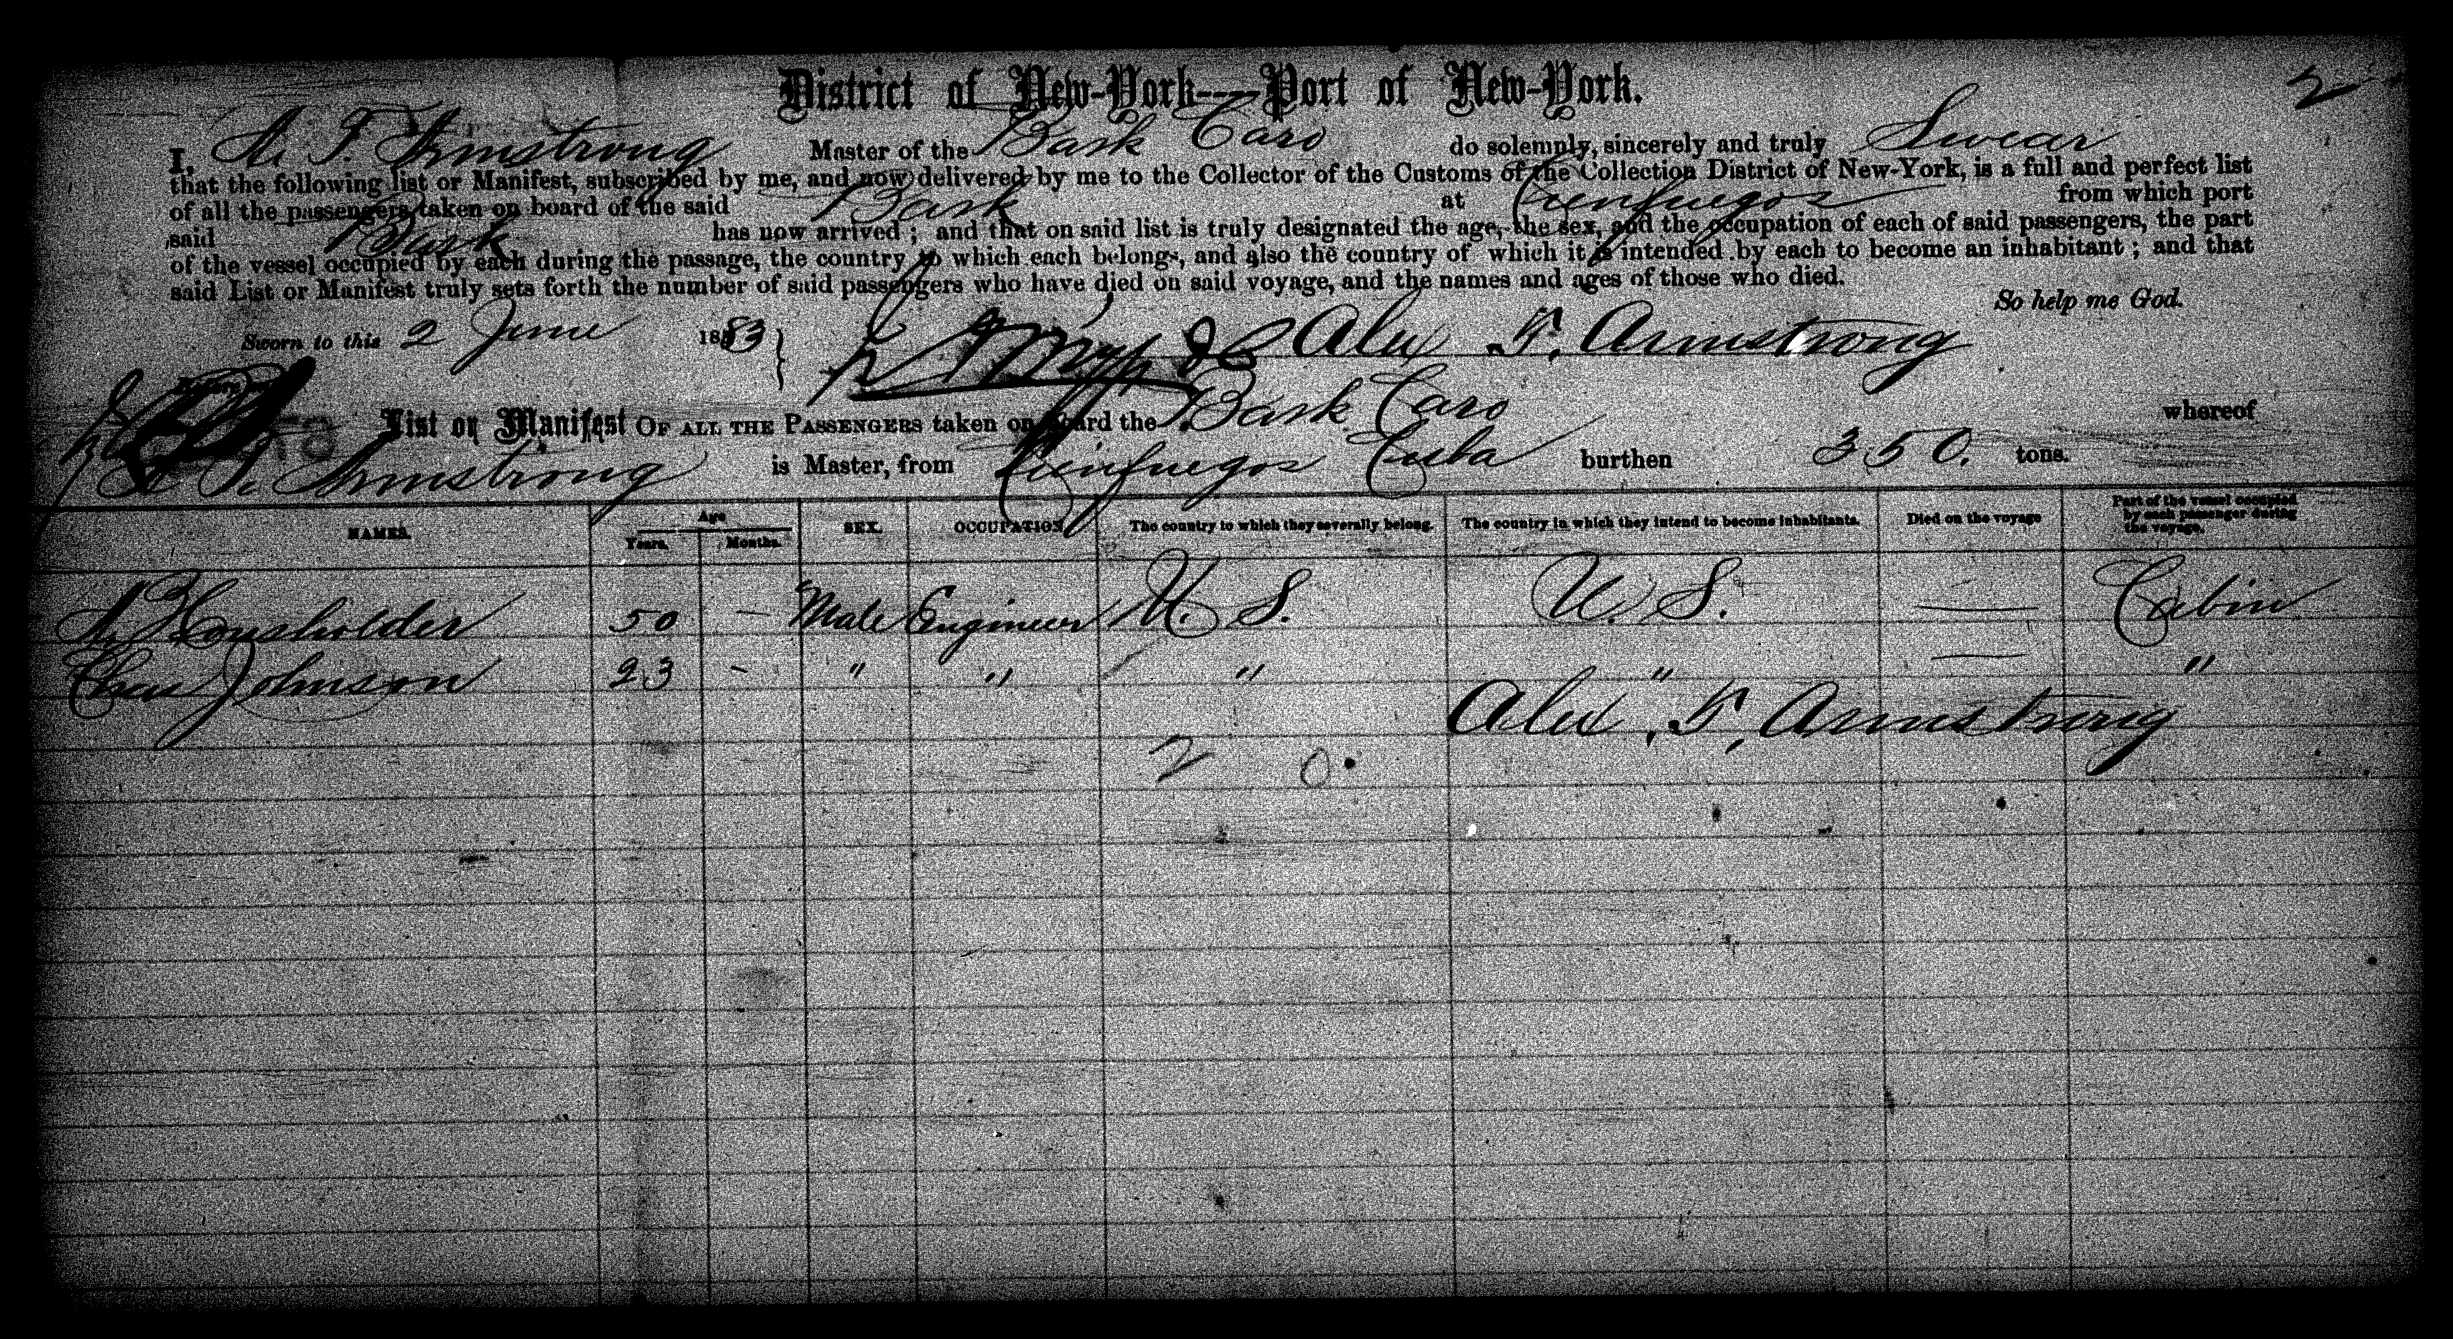 District of New-York----Port of New-York.
2
I, A. F. Armstrong Master of the Bark Caro do solemnly, sincerely and truly Swear
that the following list or Manifest, subscribed by me, and now delivered by me to the Collector of the Customs of the Collection District of New-York, is a full and perfect list
of all the passengers taken on board of the said Bark at Cienfuegos from which port
said Bark has now arrived ; and that on said list is truly designated the age, the sex, and the occupation of each of said passengers, the part
of the vessel occupied by each during the passage, the country to which each belongs, and also the country of which it is intended by each to become an inhabitant ; and that
said List or Manifest truly sets forth the number of said passengers who have died on said voyage, and the names and ages of those who died.
So help me God.
Sworn to this 2 June 1883 Alex F. Armstrong
List or Manifest OF ALL THE PASSENGERS taken on board the Bark Caro whereof
A. F. Armstrong is Master, from Cienfuegos Cuba burthen 350. tons.
NAMES. Age Years. Months. SEX. OCCUPATION The country to which they severally belong. The country in which they intend to become inhabitants. Died on the voyage Part of the vessel occupied by each passenger during the voyage.
Housholder 50 — Male Engineer U. S. U. S. — Cabin
Chas Johnson 23 - " " " " — "
Alex. F. Armstrong
2 0